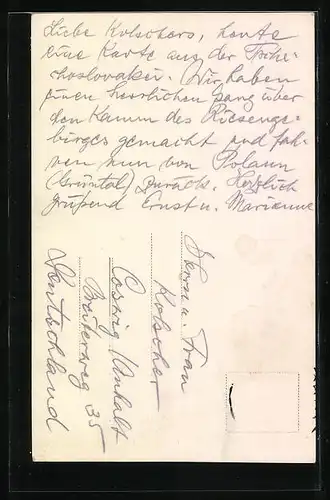 Liebe Kolschers, heute
eine Karte aus der Tsche-
choslovakei. Wir haben
einen herrlichen Gang über
den Kamm des Riesenge-
birges gemacht und fah-
ren nun von Polaun
(Grüntal) zurück. Herzlich
grüßend Ernst u. Marianne
Herrn u. Frau
Kolscher
Coswig (Anhalt
35
Deutschland